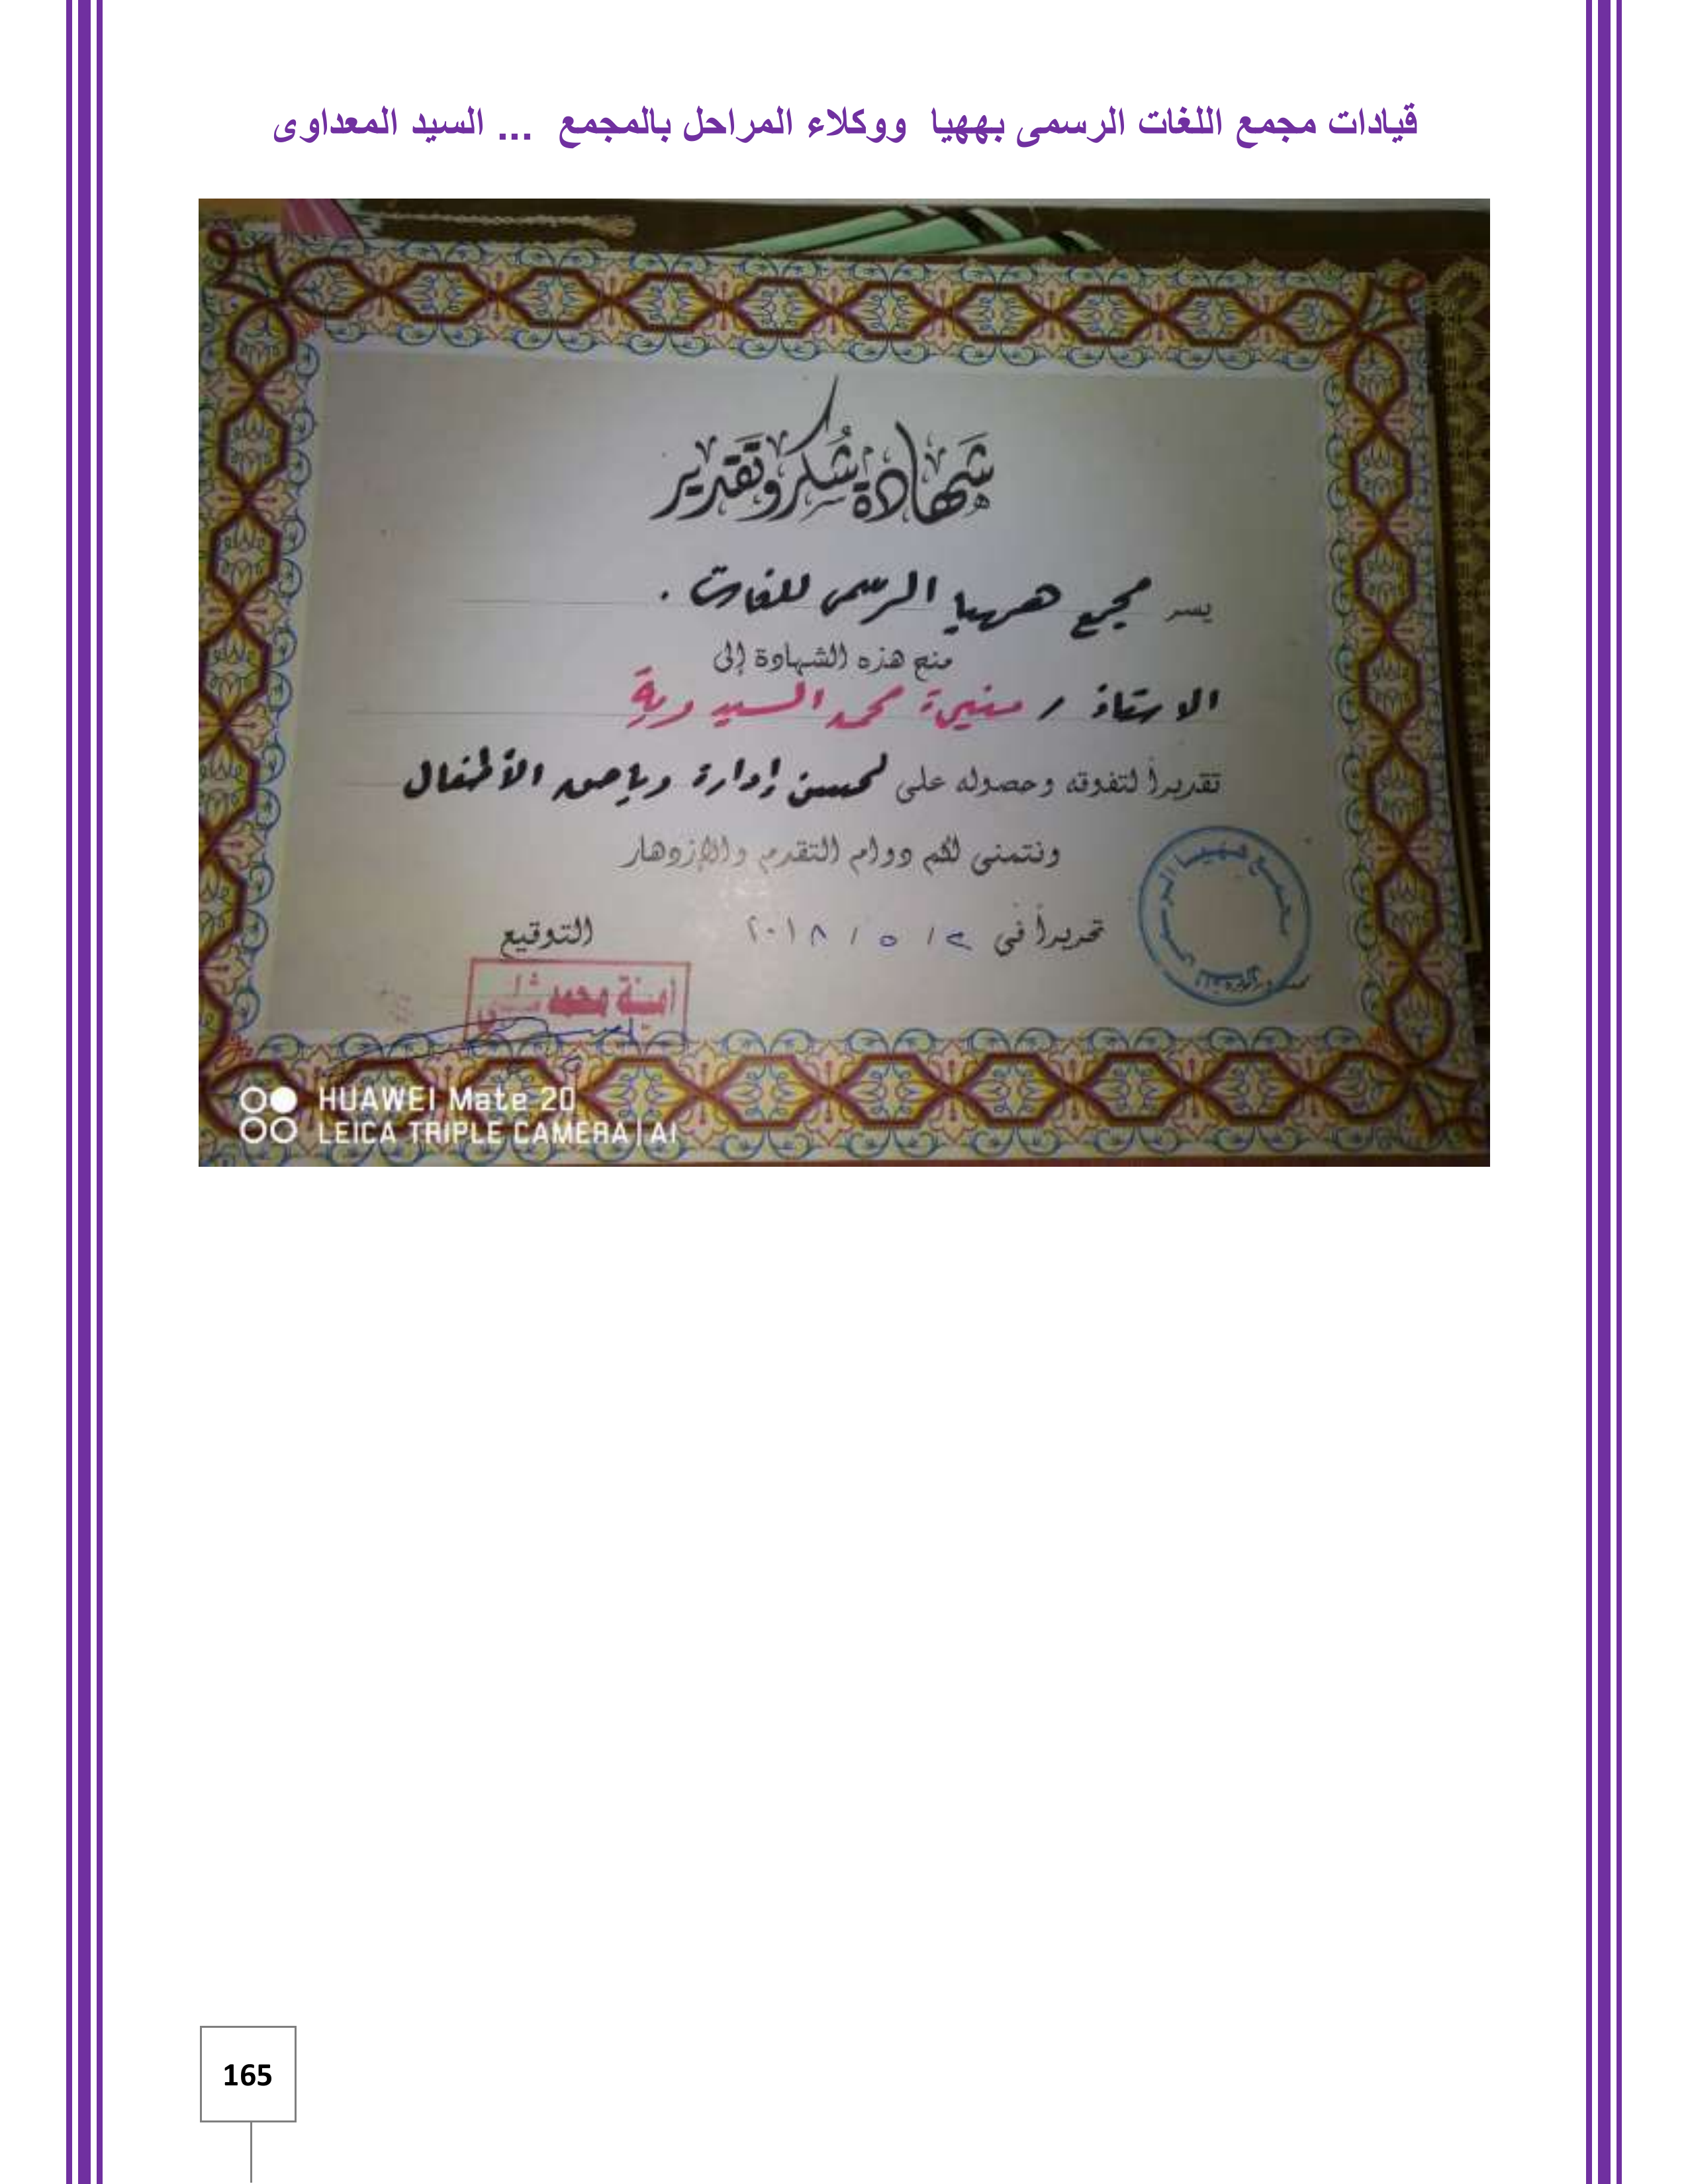 قيادات مجمع اللغات الرسمى بههيا ووكلاء المراحل بالمجمع ... السيد المعداوى
شهادة شكر وتقدير
يسر مجمع ههيا الرسمى للغات .
منح هذه الشهادة إلى
الاستاذ / منيرة محمد السيد دية
تقديراً لتفوقه وحصوله على لحسن إدارة رياض الأطفال
ونتمنى لكم دوام التقدم والإزدهار
تحريراً فى ٢ / ٥ / ٢٠١٨
التوقيع
أمينة محمد
HUAWEI Mate 20
LEICA TRIPLE CAMERA | AI
165